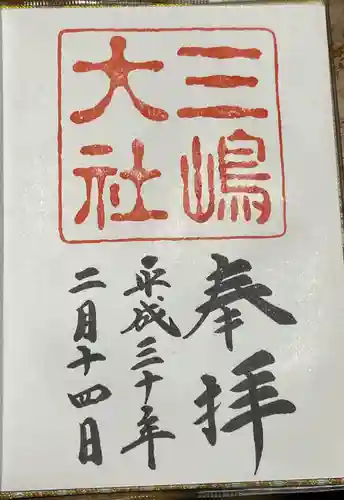 三嶋
大社
奉拝
平成三十年
二月十四日